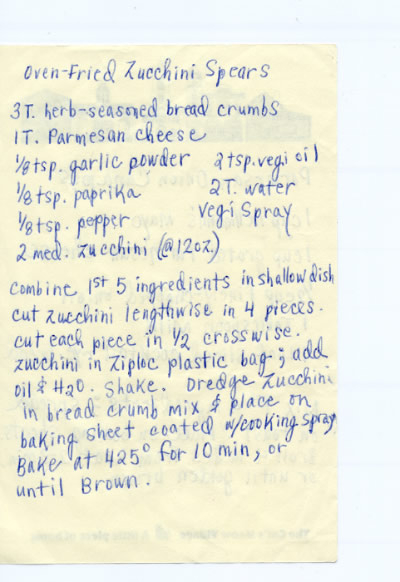 Oven-Fried Zucchini Spears
3T. herb-seasoned bread crumbs
1T. Parmesan cheese
1/8 tsp. garlic powder 2 tsp. vegi oil
1/8 tsp. paprika 2T. water
1/8 tsp. pepper Vegi Spray
2 med. Zucchini (@12oz.)
Combine 1st 5 ingredients in shallow dish
cut zucchini lengthwise in 4 pieces.
cut each piece in 1/2 crosswise.
zucchini in Ziploc plastic bag; add
oil & H2O. Shake. Dredge Zucchini
in bread crumb mix & place on
baking sheet coated w/cooking spray
Bake at 425° for 10 min, or
until Brown.